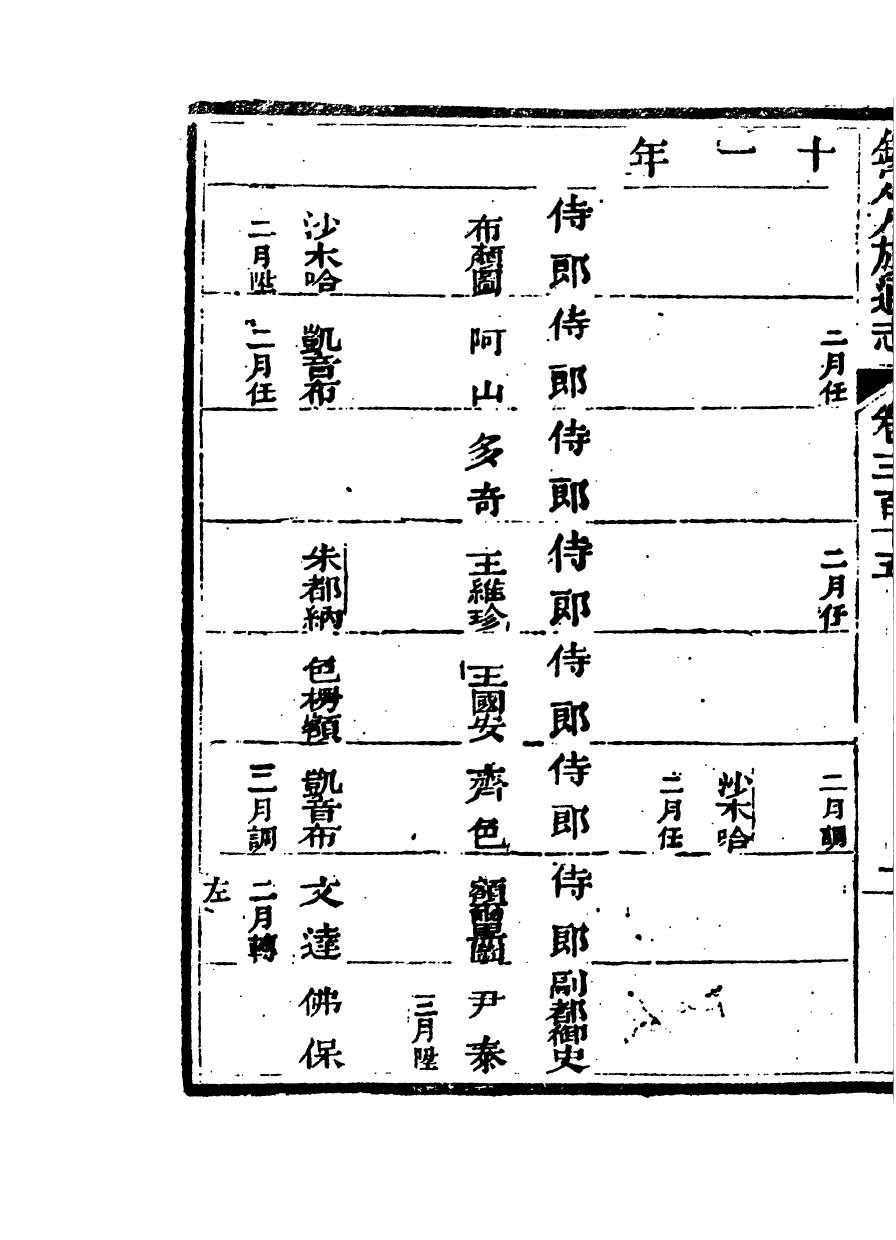 八旗通志 卷三百十五
十一年
二月任 二月任 二月調
沙木哈
二月任
侍郎 侍郎 侍郎 侍郎 侍郎 侍郎 侍郎 副都御史
布顏圖 阿山 多奇 王維珍 王國安 齊色 尹泰
三月陞
沙木哈 凱音布 朱都納 色楞額 凱音布 文達 佛保
二月陞 二月任 三月調 二月轉
左